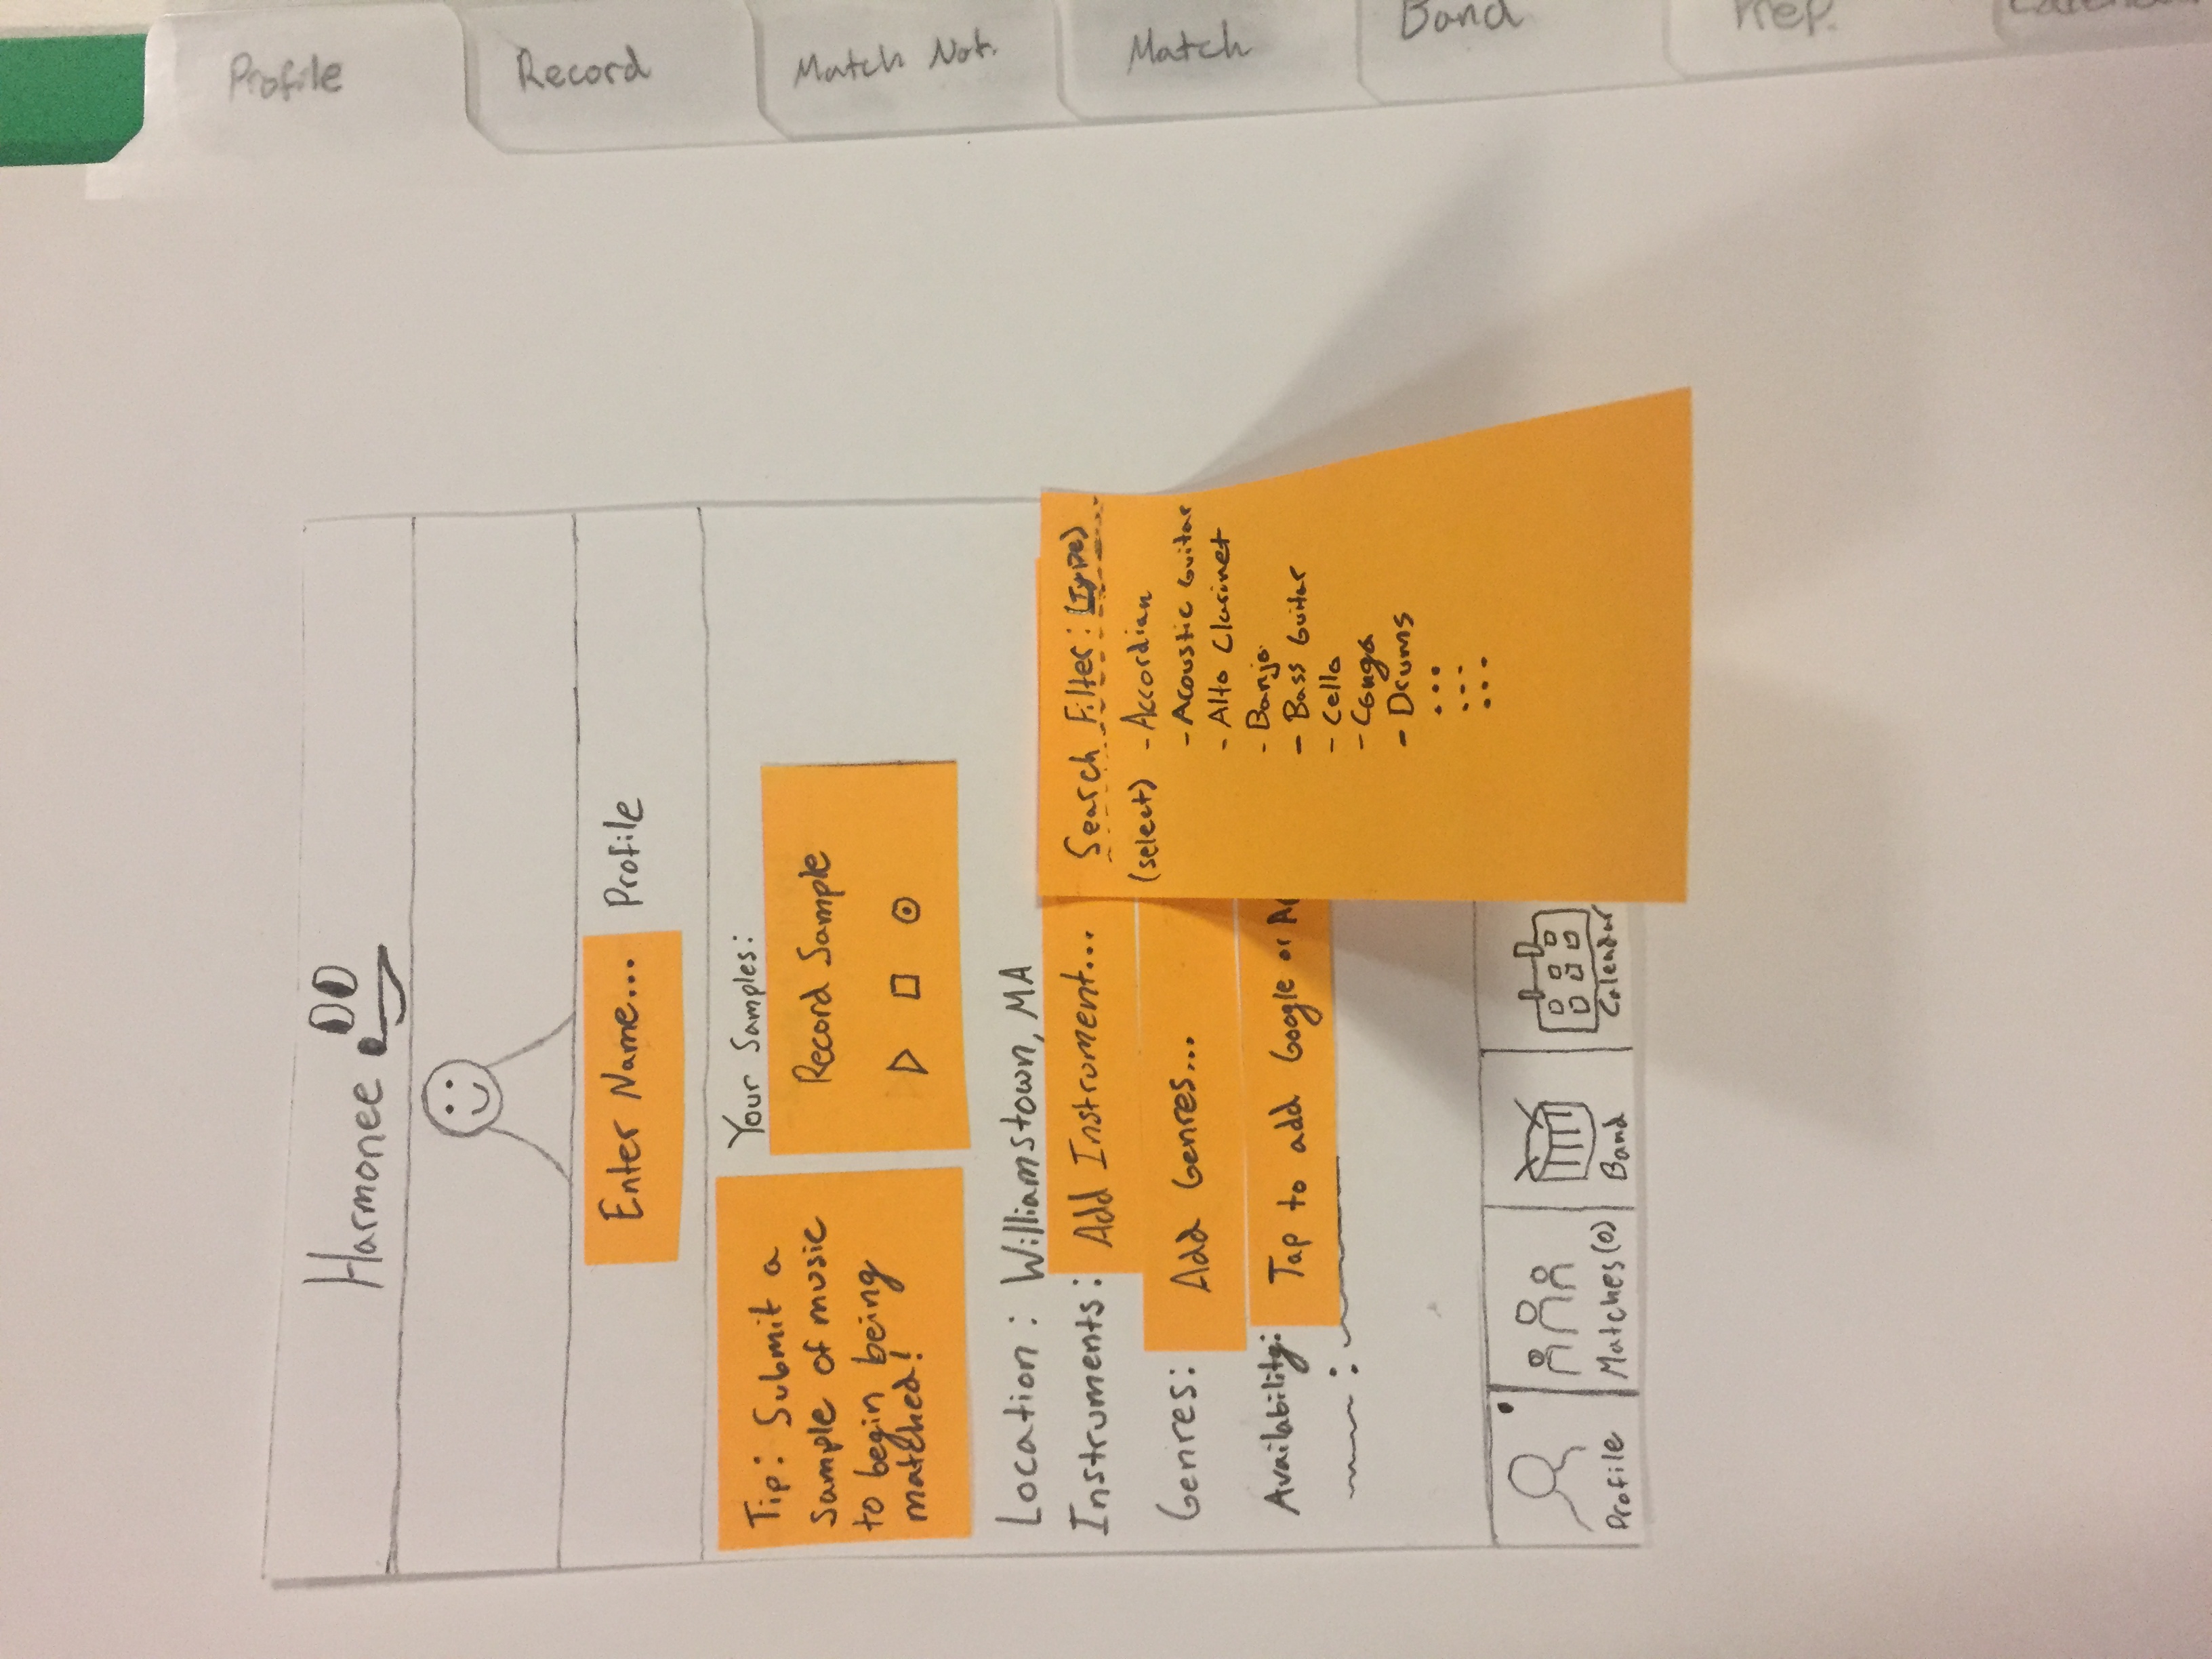 Harmonee
Enter Name... Profile
Tip: Submit a
sample of music
to begin being
matched!
Your Samples:
Record Sample
Location: Williamstown, MA
Instruments: Add Instrument...
Genres: Add Genres...
Availability: Tap to add Google or
Search Filter: (Type)
(select) - Accordian
- Acoustic Guitar
- Alto Clarinet
- Banjo
- Bass Guitar
- Cello
- Conga
- Drums
...
...
...
Profile
Matches (0)
Band
Calendar
Profile
Record
Match Not.
Match
Band
Pref.